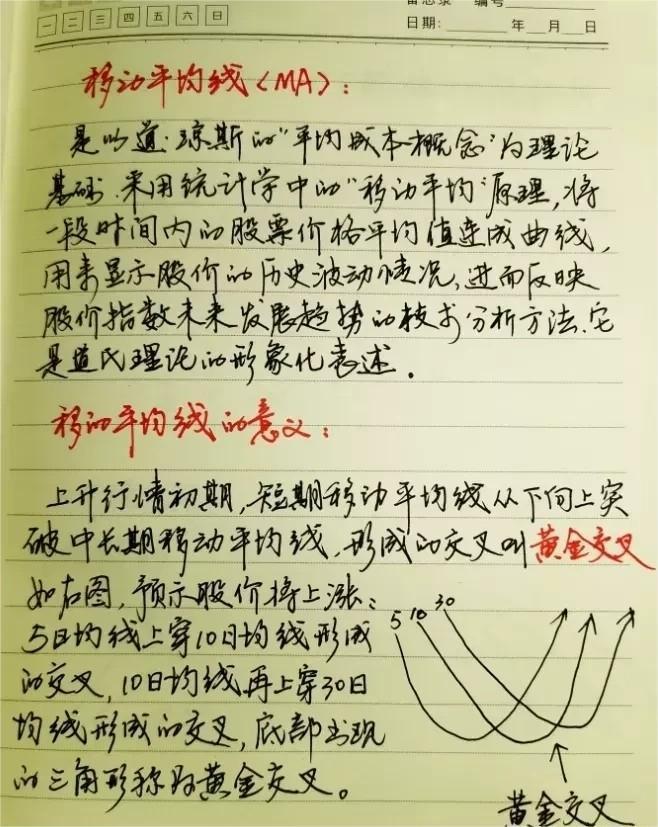 备忘录 编号
一 二 三 四 五 六 日
日期: 年 月 日
移动平均线(MA):
是以道·琼斯的"平均成本概念"为理论
基础.采用统计学中的"移动平均"原理,将
一段时间内的股票价格平均值连成曲线,
用来显示股价的历史波动情况,进而反映
股价指数未来发展趋势的技术分析方法.它
是道氏理论的形象化表述.
移动平均线的意义:
上升行情初期,短期移动平均线从下向上突
破中长期移动平均线,形成的交叉叫黄金交叉
如右图,预示股价将上涨:
5日均线上穿10日均线形成
的交叉,10日均线再上穿30日
均线形成的交叉,底部出现
的三角形称为黄金交叉。
5 10 30
黄金交叉